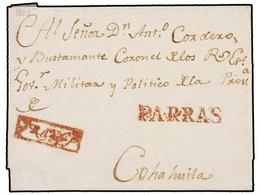 Al Señor Dn. Anto. Cordero,
y Bustamante Coronel de los Rs. Exs.
Govr. Militar y Politico de la Prova.
de
PARRAS
FRANCO
Cohahuila